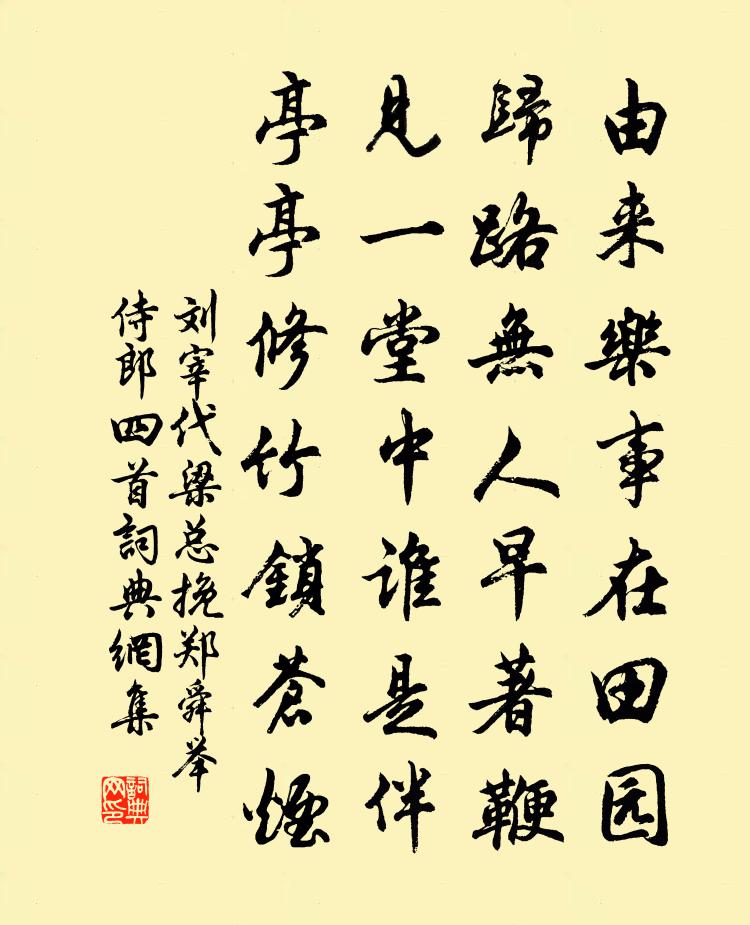 由来樂事在田园
歸路無人早著鞭
見一堂中谁是伴
亭亭修竹鎖蒼煙
刘宰代梁总挽郑舜举
侍郎四首詞典網集
詞典网印